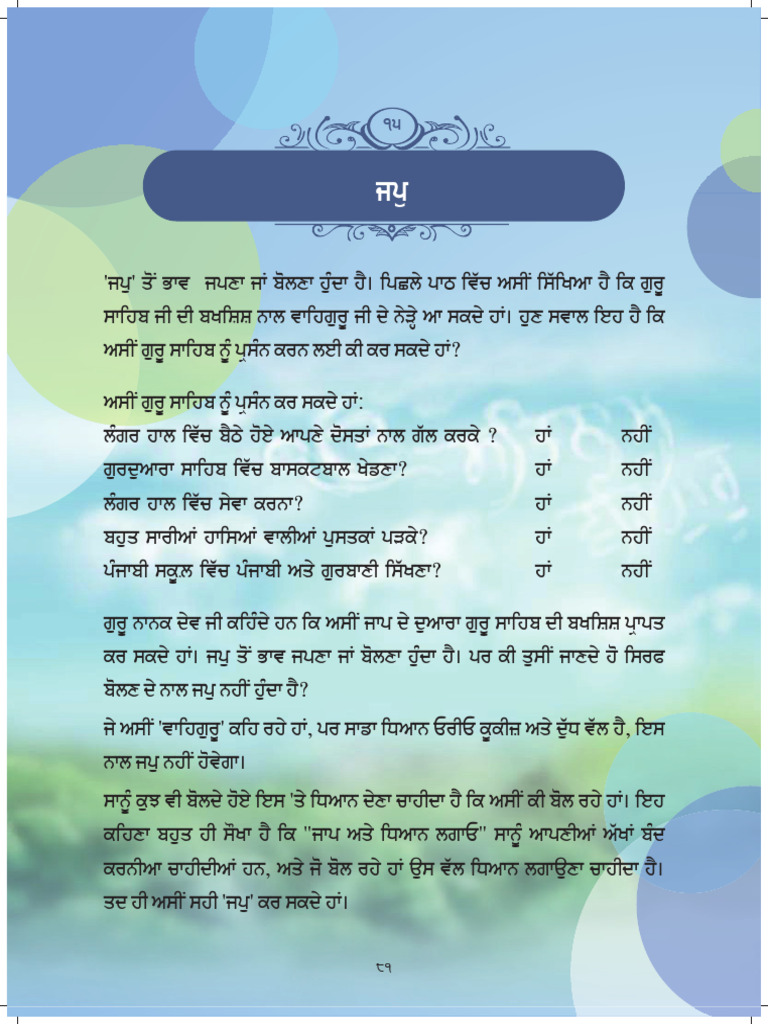 ੧੫
ਜਪੁ
'ਜਪੁ' ਤੋਂ ਭਾਵ ਜਪਣਾ ਜਾਂ ਬੋਲਣਾ ਹੁੰਦਾ ਹੈ। ਪਿਛਲੇ ਪਾਠ ਵਿੱਚ ਅਸੀਂ ਸਿੱਖਿਆ ਹੈ ਕਿ ਗੁਰੂ
ਸਾਹਿਬ ਜੀ ਦੀ ਬਖਸ਼ਿਸ਼ ਨਾਲ ਵਾਹਿਗੁਰੂ ਜੀ ਦੇ ਨੇੜ੍ਹੇ ਆ ਸਕਦੇ ਹਾਂ। ਹੁਣ ਸਵਾਲ ਇਹ ਹੈ ਕਿ
ਅਸੀਂ ਗੁਰੂ ਸਾਹਿਬ ਨੂੰ ਪ੍ਰਸੰਨ ਕਰਨ ਲਈ ਕੀ ਕਰ ਸਕਦੇ ਹਾਂ?
ਅਸੀਂ ਗੁਰੂ ਸਾਹਿਬ ਨੂੰ ਪ੍ਰਸੰਨ ਕਰ ਸਕਦੇ ਹਾਂ:
ਲੰਗਰ ਹਾਲ ਵਿੱਚ ਬੈਠੇ ਹੋਏ ਆਪਣੇ ਦੋਸਤਾਂ ਨਾਲ ਗੱਲ ਕਰਕੇ ? ਹਾਂ ਨਹੀਂ
ਗੁਰਦੁਆਰਾ ਸਾਹਿਬ ਵਿੱਚ ਬਾਸਕਟਬਾਲ ਖੇਡਣਾ? ਹਾਂ ਨਹੀਂ
ਲੰਗਰ ਹਾਲ ਵਿੱਚ ਸੇਵਾ ਕਰਨਾ? ਹਾਂ ਨਹੀਂ
ਬਹੁਤ ਸਾਰੀਆਂ ਹਾਸਿਆਂ ਵਾਲੀਆਂ ਪੁਸਤਕਾਂ ਪੜਕੇ? ਹਾਂ ਨਹੀਂ
ਪੰਜਾਬੀ ਸਕੂਲ਼ ਵਿੱਚ ਪੰਜਾਬੀ ਅਤੇ ਗੁਰਬਾਣੀ ਸਿੱਖਣਾ? ਹਾਂ ਨਹੀਂ
ਗੁਰੂ ਨਾਨਕ ਦੇਵ ਜੀ ਕਹਿੰਦੇ ਹਨ ਕਿ ਅਸੀਂ ਜਾਪ ਦੇ ਦੁਆਰਾ ਗੁਰੂ ਸਾਹਿਬ ਦੀ ਬਖਸ਼ਿਸ਼ ਪ੍ਰਾਪਤ
ਕਰ ਸਕਦੇ ਹਾਂ। ਜਪੁ ਤੋਂ ਭਾਵ ਜਪਣਾ ਜਾਂ ਬੋਲਣਾ ਹੁੰਦਾ ਹੈ। ਪਰ ਕੀ ਤੁਸੀਂ ਜਾਣਦੇ ਹੋ ਸਿਰਫ
ਬੋਲਣ ਦੇ ਨਾਲ ਜਪੁ ਨਹੀਂ ਹੁੰਦਾ ਹੈ?
ਜੇ ਅਸੀਂ 'ਵਾਹਿਗੁਰੂ' ਕਹਿ ਰਹੇ ਹਾਂ, ਪਰ ਸਾਡਾ ਧਿਆਨ ਓਰੀਓ ਕੂਕੀਜ਼ ਅਤੇ ਦੁੱਧ ਵੱਲ ਹੈ, ਇਸ
ਨਾਲ ਜਪੁ ਨਹੀਂ ਹੋਵੇਗਾ।
ਸਾਨੂੰ ਕੁਝ ਵੀ ਬੋਲਦੇ ਹੋਏ ਇਸ 'ਤੇ ਧਿਆਨ ਦੇਣਾ ਚਾਹੀਦਾ ਹੈ ਕਿ ਅਸੀਂ ਕੀ ਬੋਲ ਰਹੇ ਹਾਂ। ਇਹ
ਕਹਿਣਾ ਬਹੁਤ ਹੀ ਸੌਖਾ ਹੈ ਕਿ "ਜਾਪ ਅਤੇ ਧਿਆਨ ਲਗਾਓ" ਸਾਨੂੰ ਆਪਣੀਆਂ ਅੱਖਾਂ ਬੰਦ
ਕਰਨੀਆ ਚਾਹੀਦੀਆਂ ਹਨ, ਅਤੇ ਜੋ ਬੋਲ ਰਹੇ ਹਾਂ ਉਸ ਵੱਲ ਧਿਆਨ ਲਗਾਉਣਾ ਚਾਹੀਦਾ ਹੈ।
ਤਦ ਹੀ ਅਸੀਂ ਸਹੀ 'ਜਪੁ' ਕਰ ਸਕਦੇ ਹਾਂ।
੮੧